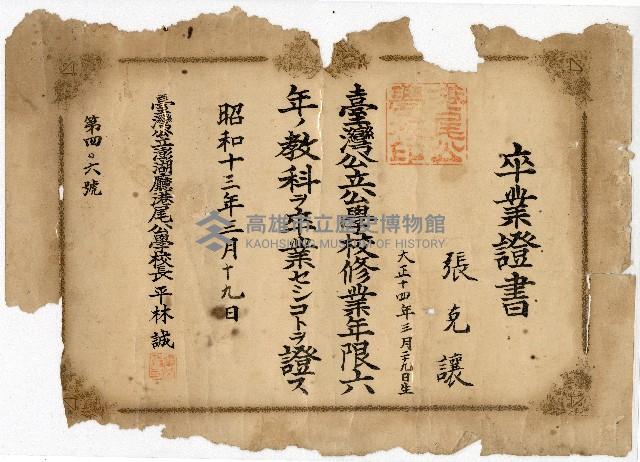 卒業證書
張克讓
大正十四年三月二十九日生
臺灣公立公學校修業年限六
年ノ教科ヲ卒業セシコトヲ證ス
昭和十三年三月十九日
臺灣公立澎湖廳港尾公學校長 平林誠
第四〇六號
港尾公
學校印
高雄市立歷史博物館
KAOHSIUNG MUSEUM OF HISTORY